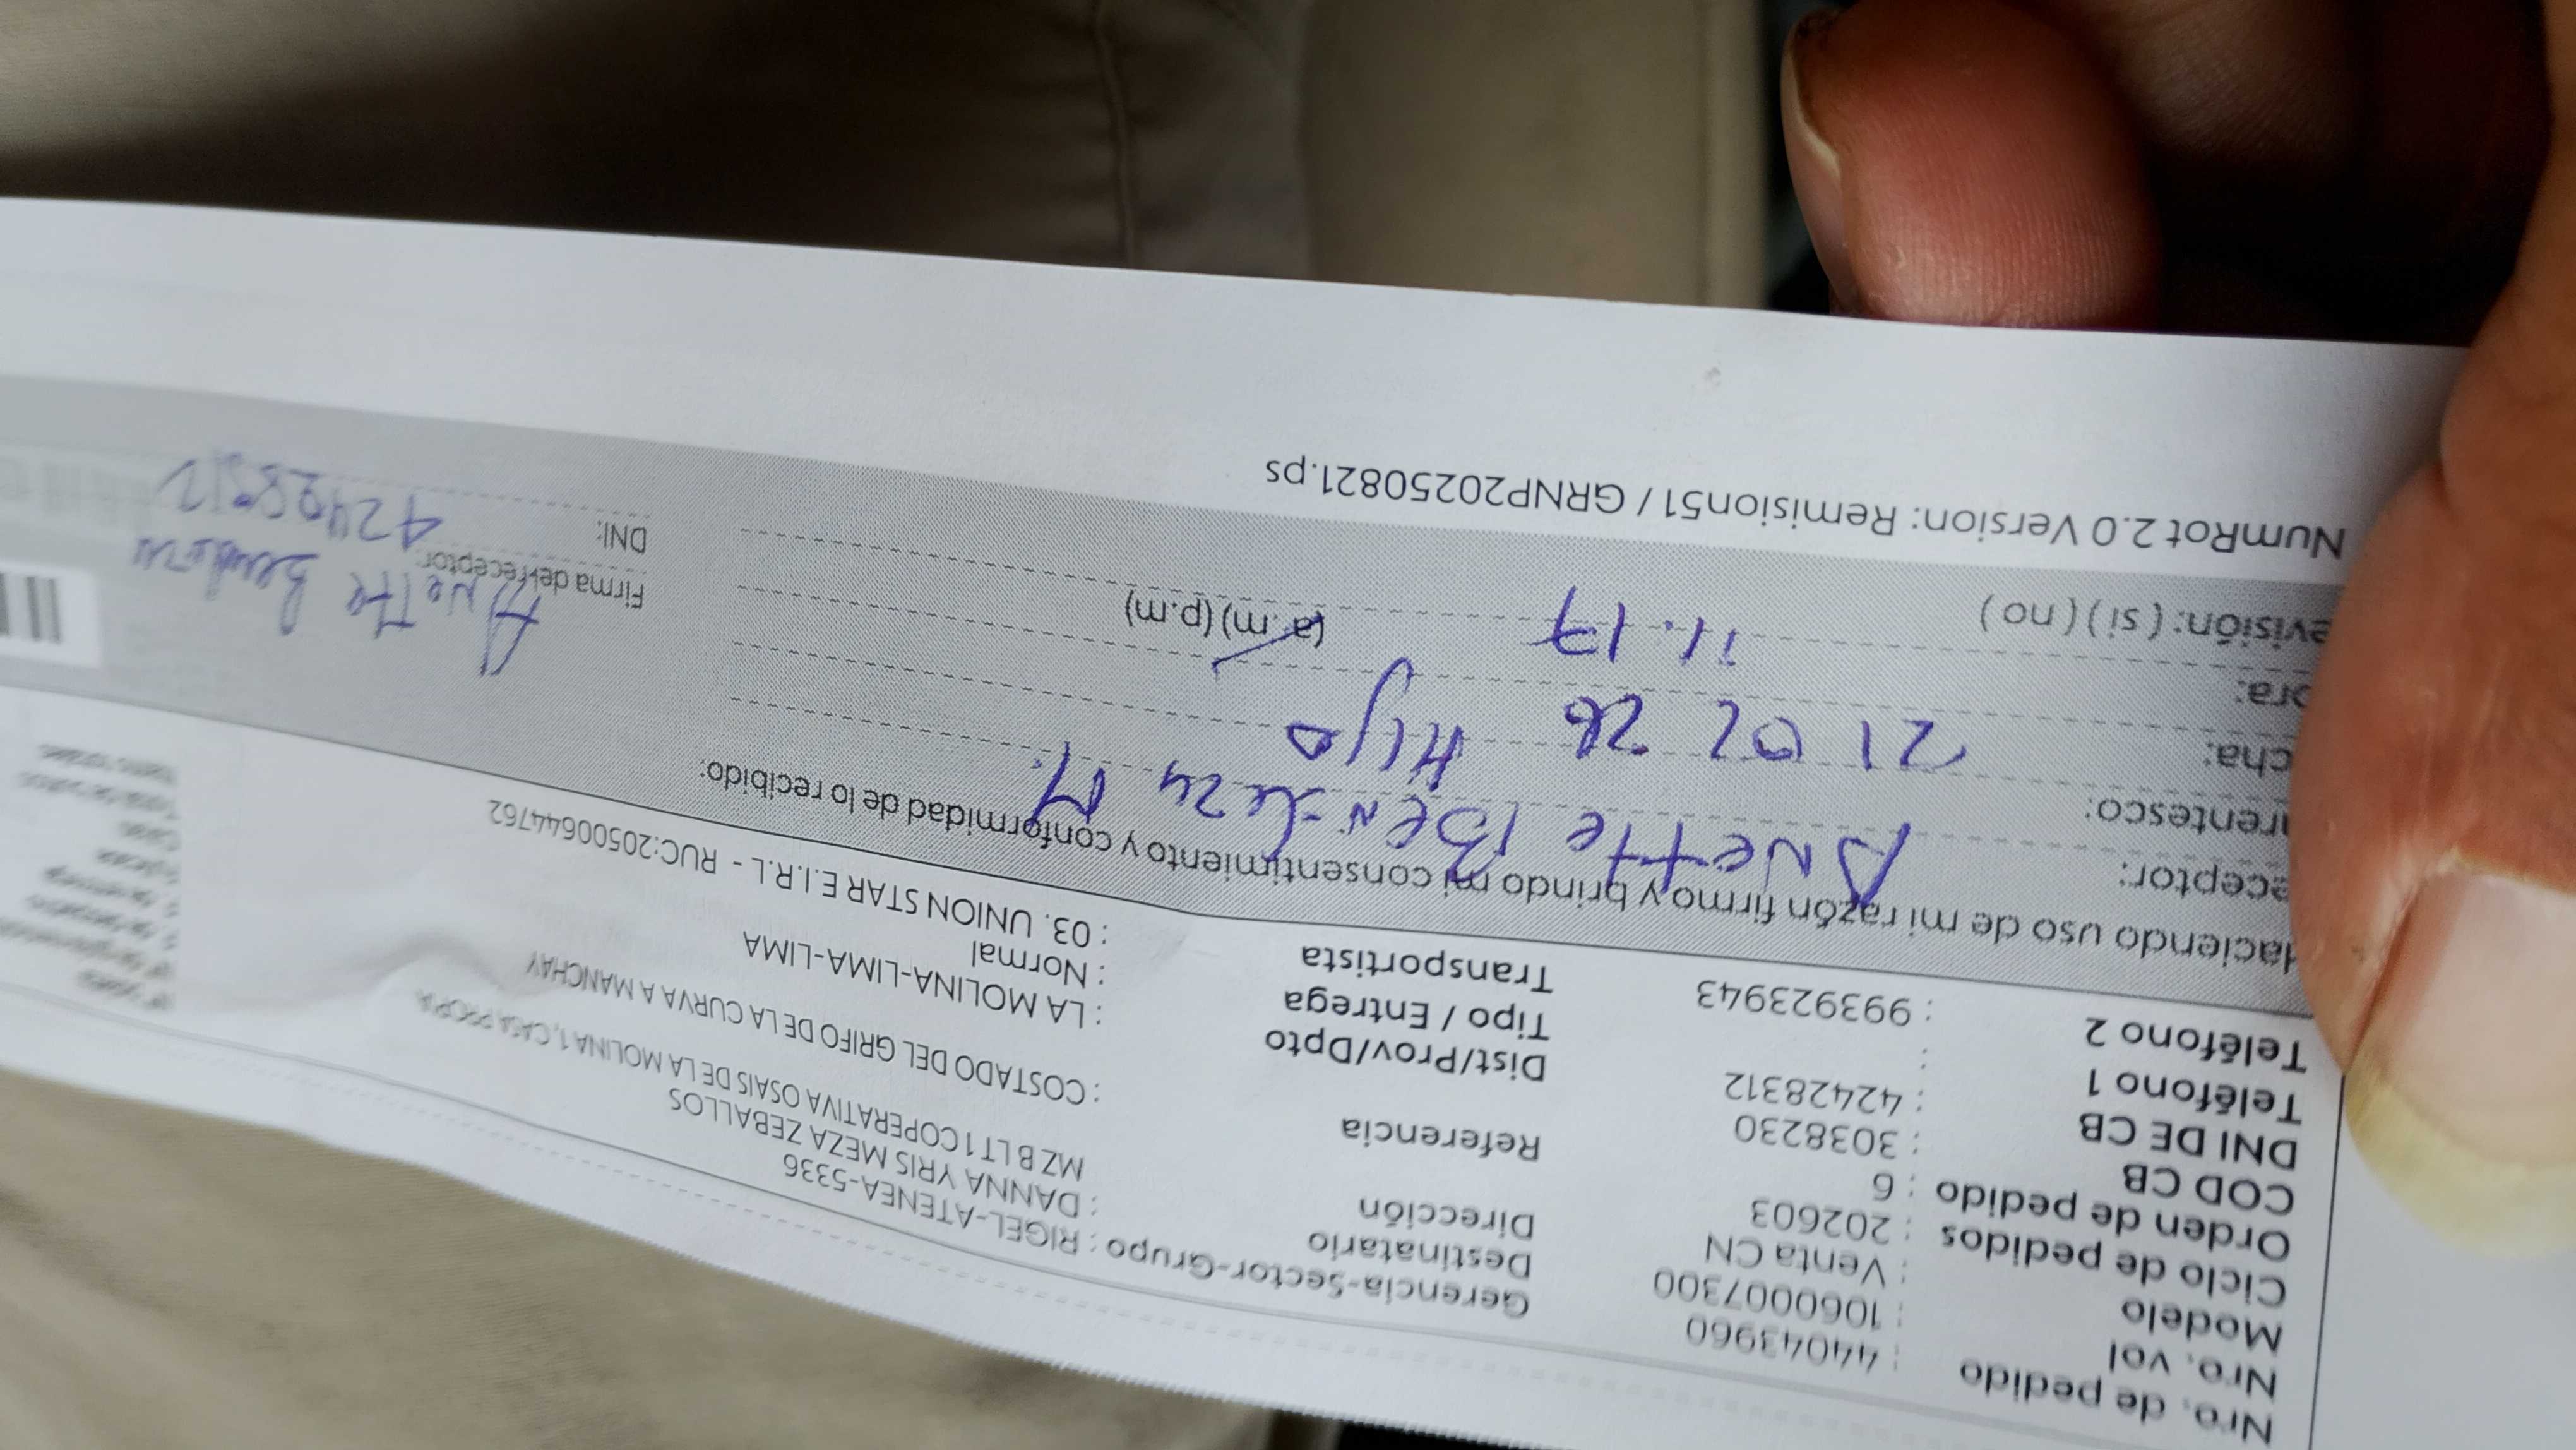 Nro. de pedido : 44043960
Nro. vol : 1060007300
Modelo : Venta CN
Ciclo de pedidos : 202603
Orden de pedido : 6
COD CB : 3038230
DNI DE CB : 42428312
Teléfono 1 :
Teléfono 2 : 993923943
Gerencia-Sector-Grupo : RIGEL-ATENEA-5336
Destinatario : DANNA YRIS MEZA ZEBALLOS
Dirección MZ B LT 1 COPERATIVA OSAIS DE LA MOLINA 1, CASA PROPIA
Referencia : COSTADO DEL GRIFO DE LA CURVA A MANCHAY
Dist/Prov/Dpto : LA MOLINA-LIMA-LIMA
Tipo / Entrega : Normal
Transportista : 03. UNION STAR E.I.R.L - RUC:20500644762
Haciendo uso de mi razón firmo y brindo mi consentimiento y conformidad de lo recibido:
eceptor: ANette M.
rentesco: Hija
cha: 21 02 26
ora: 11.17 (a.m) (p.m)
evisión: ( si ) ( no )
Anette
Firma del receptor
DNI:
NumRot 2.0 Version: Remision51 / GRNP20250821.ps